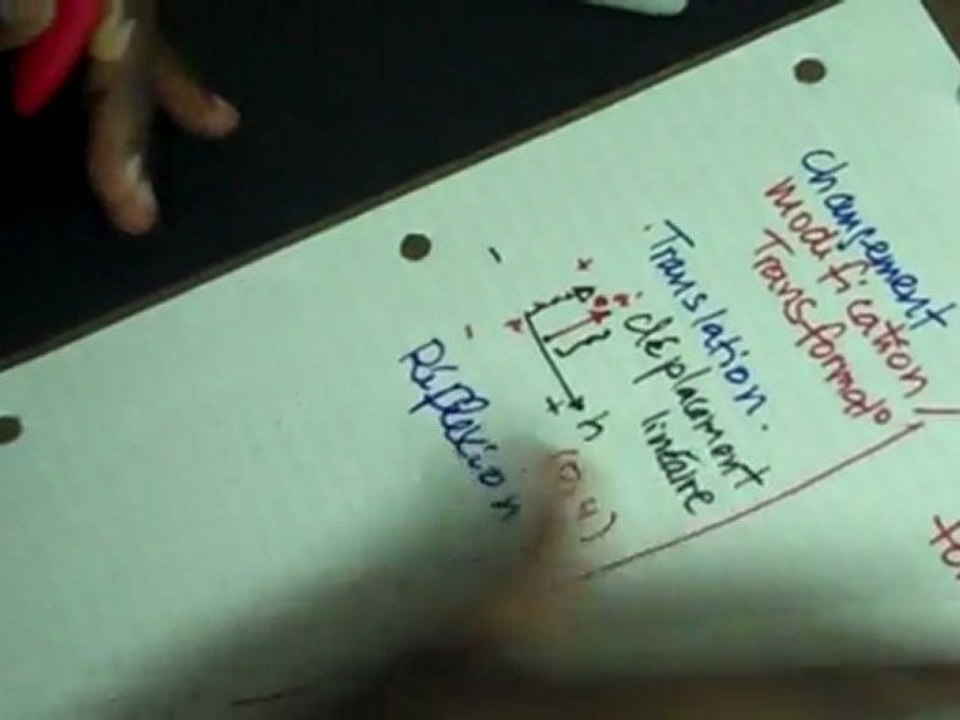 changement
modification /
Transformado
. Translation .
. déplacement
linéaire
h
(0,4)
Réflexion